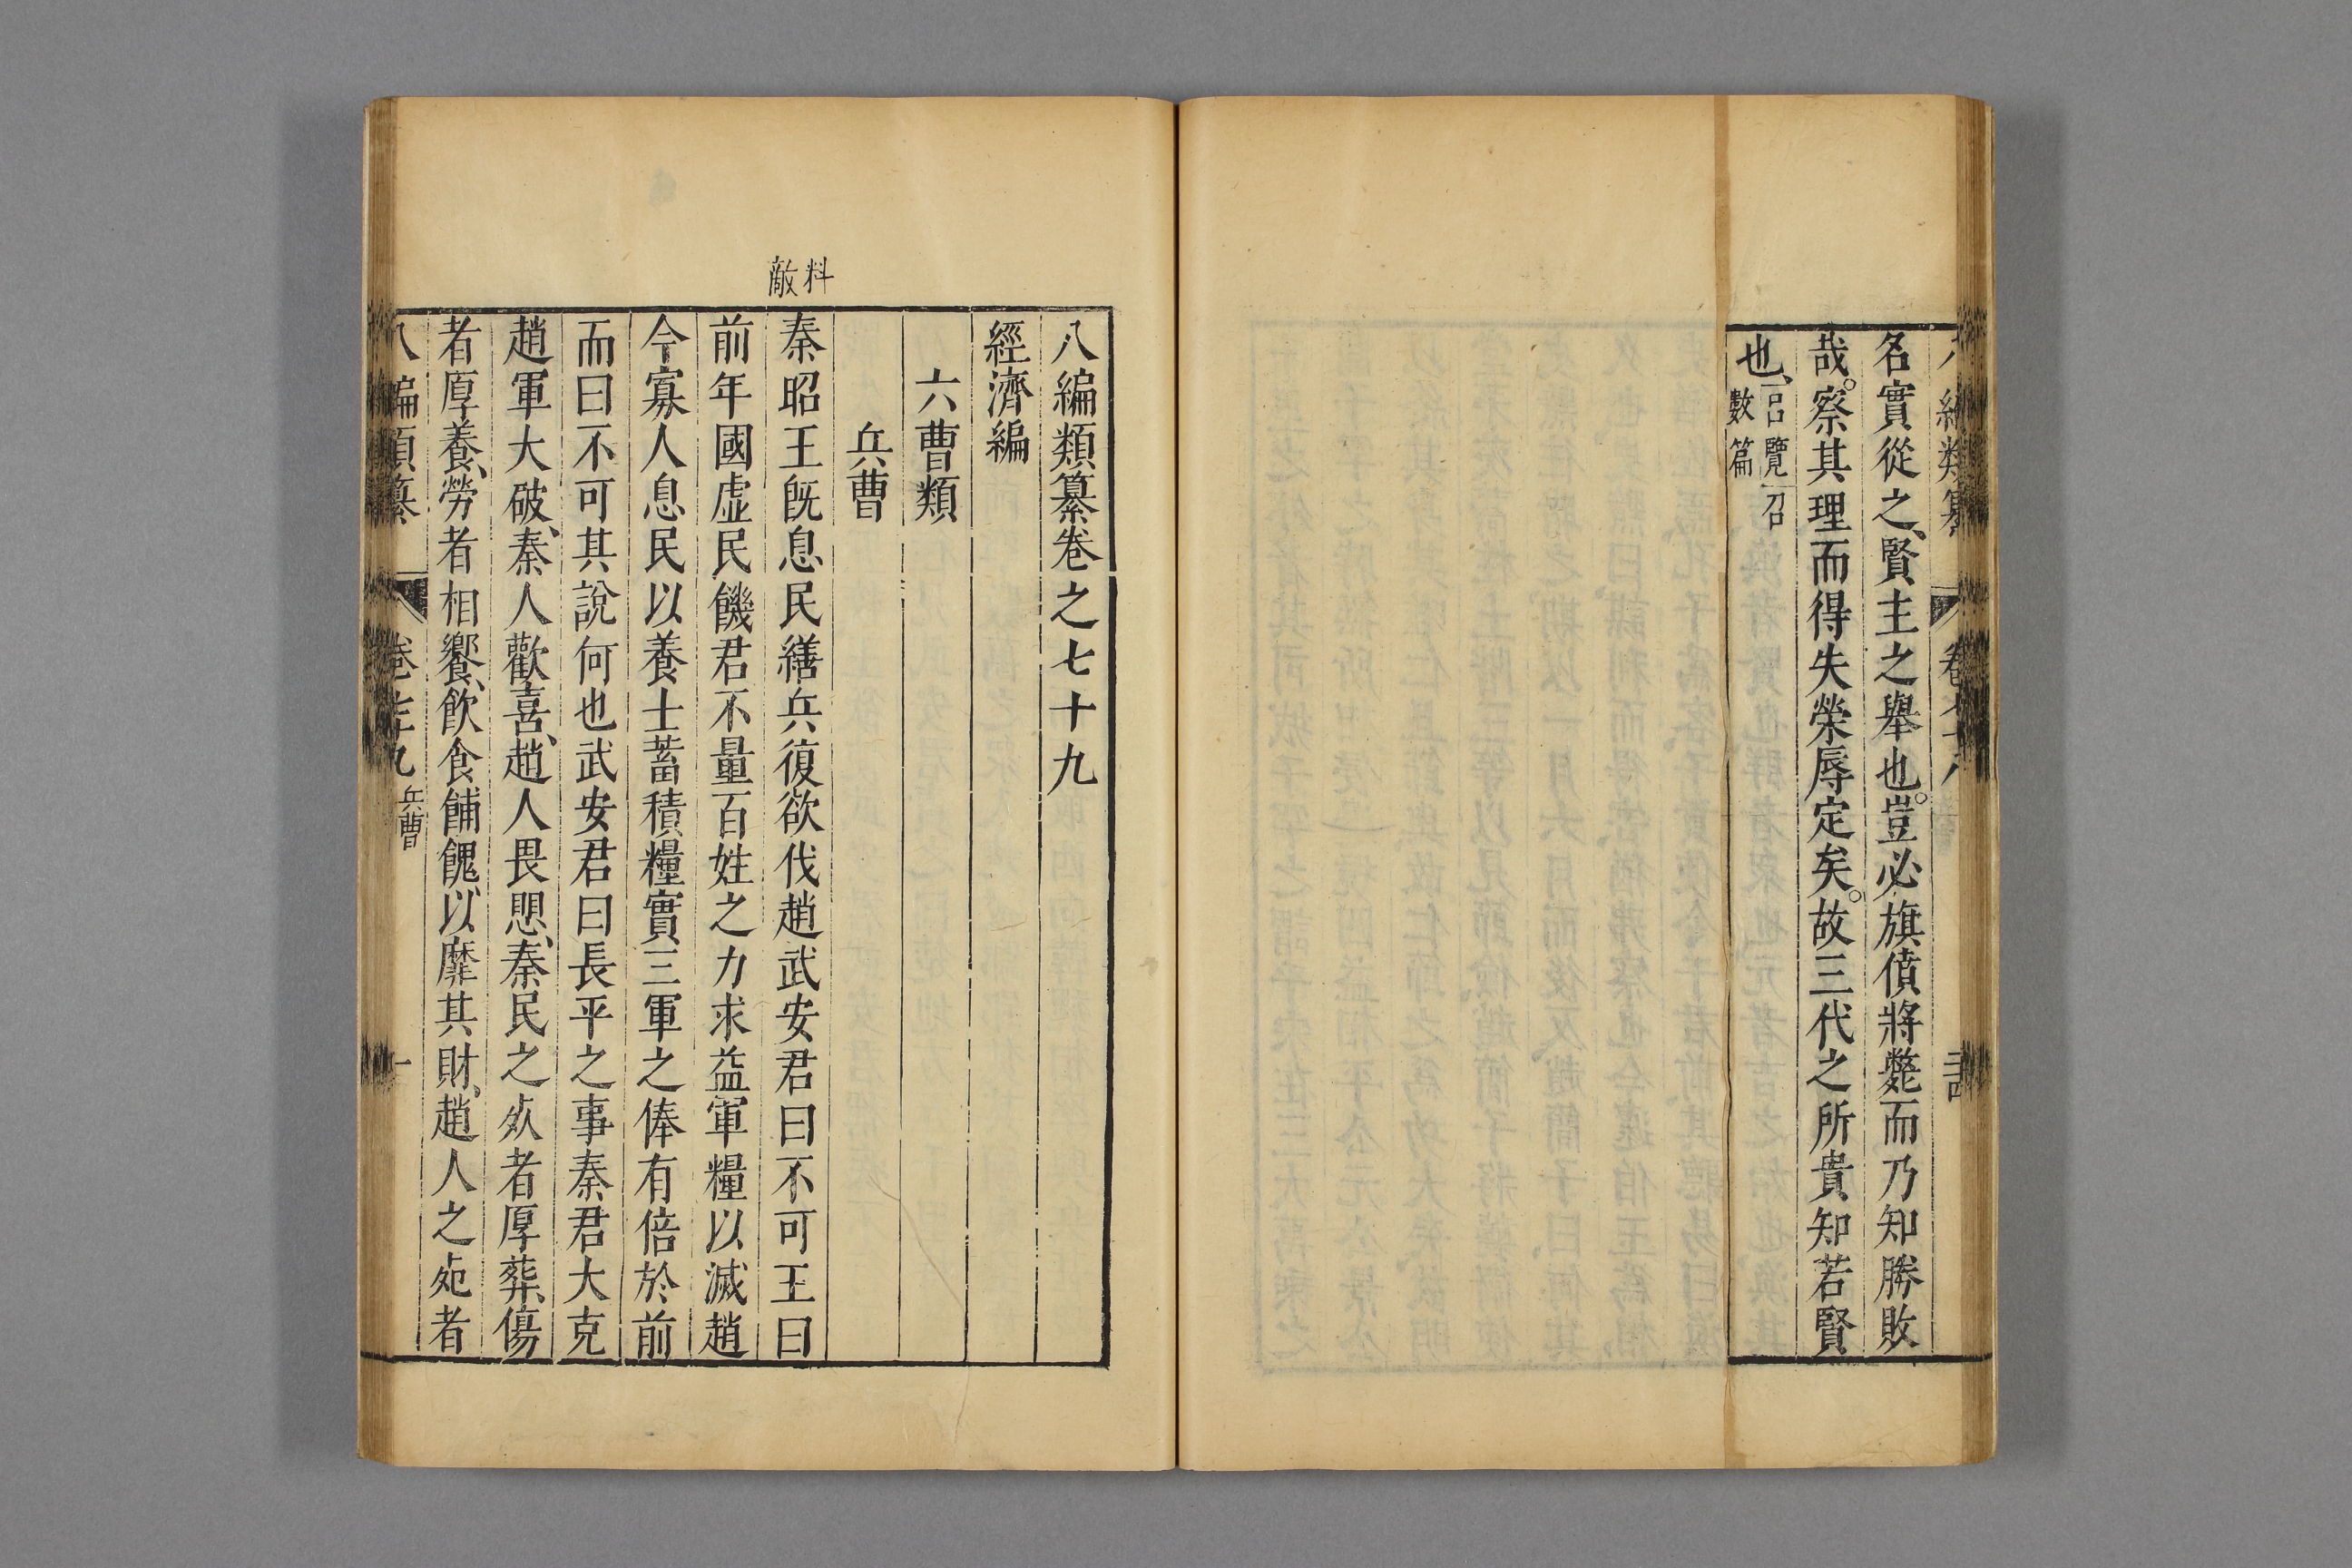 名實從之、賢主之舉也。豈必旗僨將斃而乃知勝敗
哉。察其理而得失榮辱定矣。故三代之所貴知若賢
也、呂覽召
數篇
八編類纂卷之七十九
經濟編
六曹類
兵曹
料敵
秦昭王旣息民繕兵復欲伐趙武安君曰不可王曰
前年國虛民饑君不量百姓之力求益軍糧以滅趙
今寡人息民以養士蓄積糧實三軍之俸有倍於前
而曰不可其說何也武安君曰長平之事秦君大克
趙軍大破、秦人歡喜、趙人畏思、秦民之死者厚葬、傷
者厚養、勞者相饗、飲食餔餽、以靡其財、趙人之死者
八編類纂 卷七十九 兵曹 一